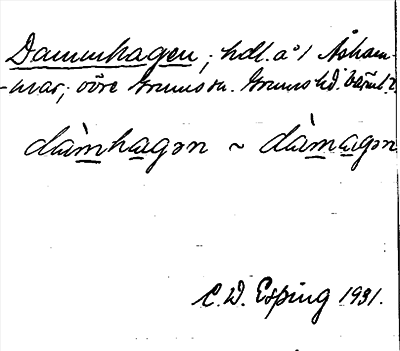 Dammhagen; hdl. å 1 Åsham-
-mar, övre Grums sn. Grums hd. Värml.
dàmhagən ~ dàmagən
C. W. Esping 1931.